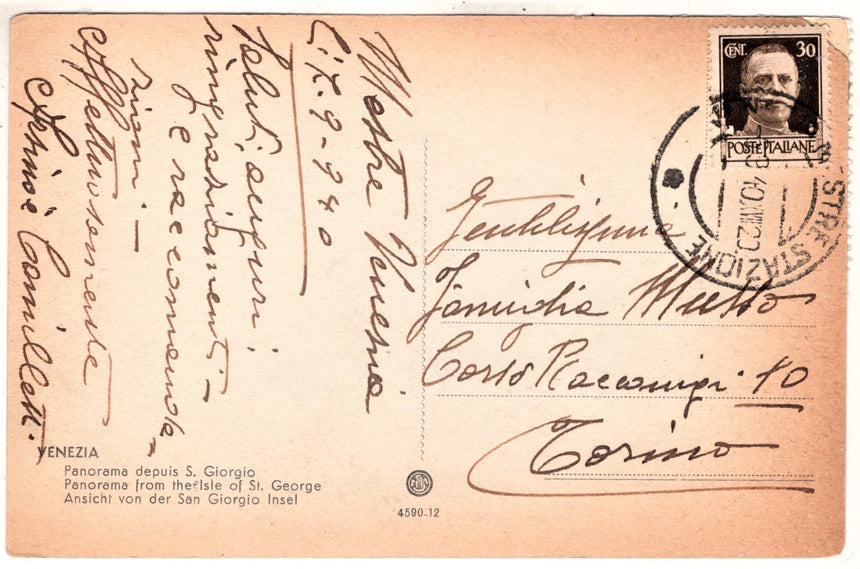 Mestre Venezia
li 7-9-940
Saluti, auguri,
ringraziamenti
e raccomanda-
zioni. -
Affettuosamente
Camilletti.
CENT. 30
POSTE ITALIANE
STRE STAZIONE
Gentilissima
Famiglia Musso
Corso Racconigi 10
Torino
VENEZIA
Panorama depuis S. Giorgio
Panorama from the Isle of St. George
Ansicht von der San Giorgio Insel
4590-12